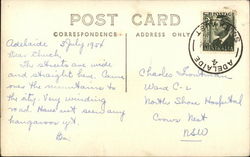 POST CARD
CORRESPONDENCE
ADDRESS ONLY
ADELAIDE
Adelaide 3 July 1954
Dear Chuck,
The streets are wide
and straight here. Came
over the mountains to
the city. Very winding
road. Have not seen any
kangaroos yet.
Charles
Ward C-2
North Shore Hospital
Crows Nest
NSW